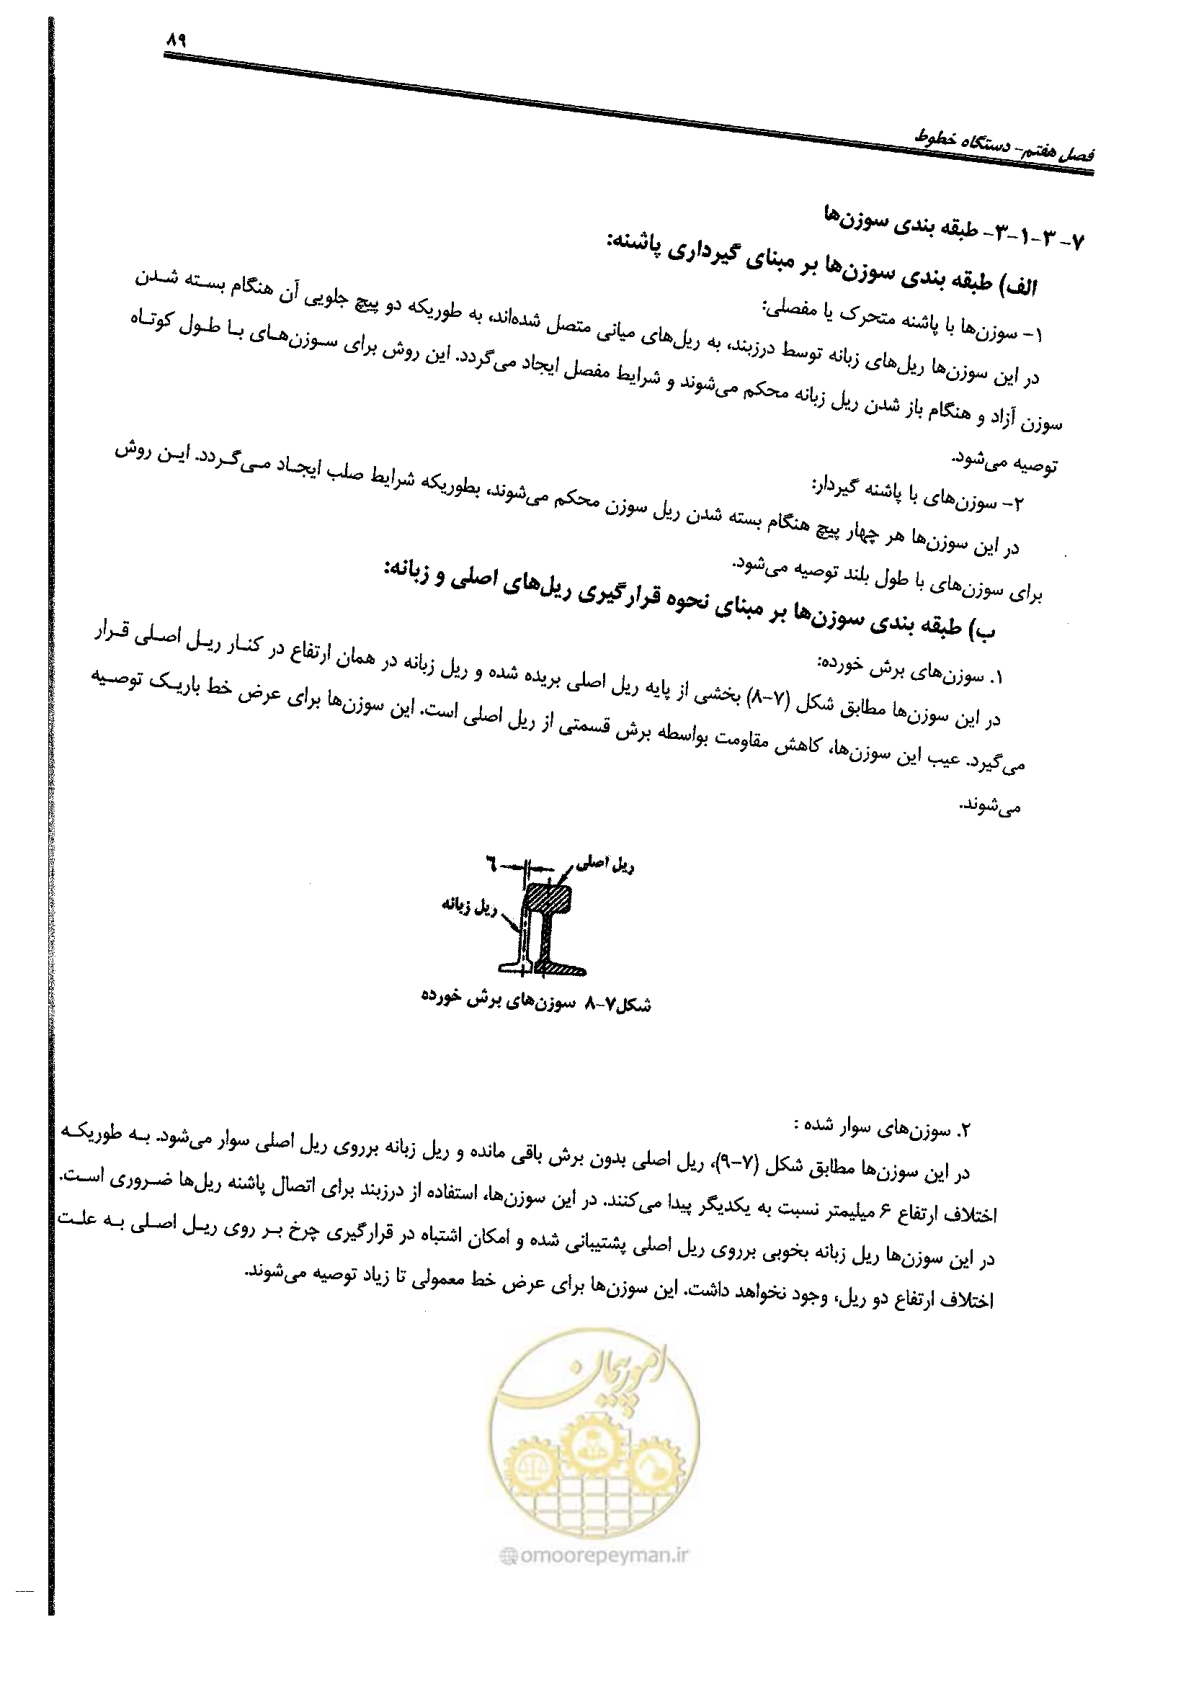 ۸۹
فصل هفتم- دستگاه خطوط
۷-۳-۱-۳- طبقه بندی سوزن‌ها
الف) طبقه بندی سوزن‌ها بر مبنای گیرداری پاشنه:
۱- سوزن‌ها با پاشنه متحرک یا مفصلی:
در این سوزن‌ها ریل‌های زبانه توسط درزبند، به ریل‌های میانی متصل شده‌اند، به طوریکه دو پیچ جلویی آن هنگام بسته شدن
سوزن آزاد و هنگام باز شدن ریل زبانه محکم می‌شوند و شرایط مفصل ایجاد می‌گردد. این روش برای سوزن‌های با طول کوتاه
توصیه می‌شود.
۲- سوزن‌های با پاشنه گیردار:
در این سوزن‌ها هر چهار پیچ هنگام بسته شدن ریل سوزن محکم می‌شوند، بطوریکه شرایط صلب ایجاد می‌گردد. این روش
برای سوزن‌های با طول بلند توصیه می‌شود.
ب) طبقه بندی سوزن‌ها بر مبنای نحوه قرارگیری ریل‌های اصلی و زبانه:
۱. سوزن‌های برش خورده:
در این سوزن‌ها مطابق شکل (۷-۸) بخشی از پایه ریل اصلی بریده شده و ریل زبانه در همان ارتفاع در کنار ریل اصلی قرار
می‌گیرد. عیب این سوزن‌ها، کاهش مقاومت بواسطه برش قسمتی از ریل اصلی است. این سوزن‌ها برای عرض خط باریک توصیه
می‌شوند.
ریل اصلی
٦
ریل زبانه
شکل۷-۸ سوزن‌های برش خورده
۲. سوزن‌های سوار شده :
در این سوزن‌ها مطابق شکل (۷-۹)، ریل اصلی بدون برش باقی مانده و ریل زبانه برروی ریل اصلی سوار می‌شود. به طوریکه
اختلاف ارتفاع ۶ میلیمتر نسبت به یکدیگر پیدا می‌کنند. در این سوزن‌ها، استفاده از درزبند برای اتصال پاشنه ریل‌ها ضروری است.
در این سوزن‌ها ریل زبانه بخوبی برروی ریل اصلی پشتیبانی شده و امکان اشتباه در قرارگیری چرخ بر روی ریل اصلی به علت
اختلاف ارتفاع دو ریل، وجود نخواهد داشت. این سوزن‌ها برای عرض خط معمولی تا زیاد توصیه می‌شوند.
امور پیمان
@omoorepeyman.ir